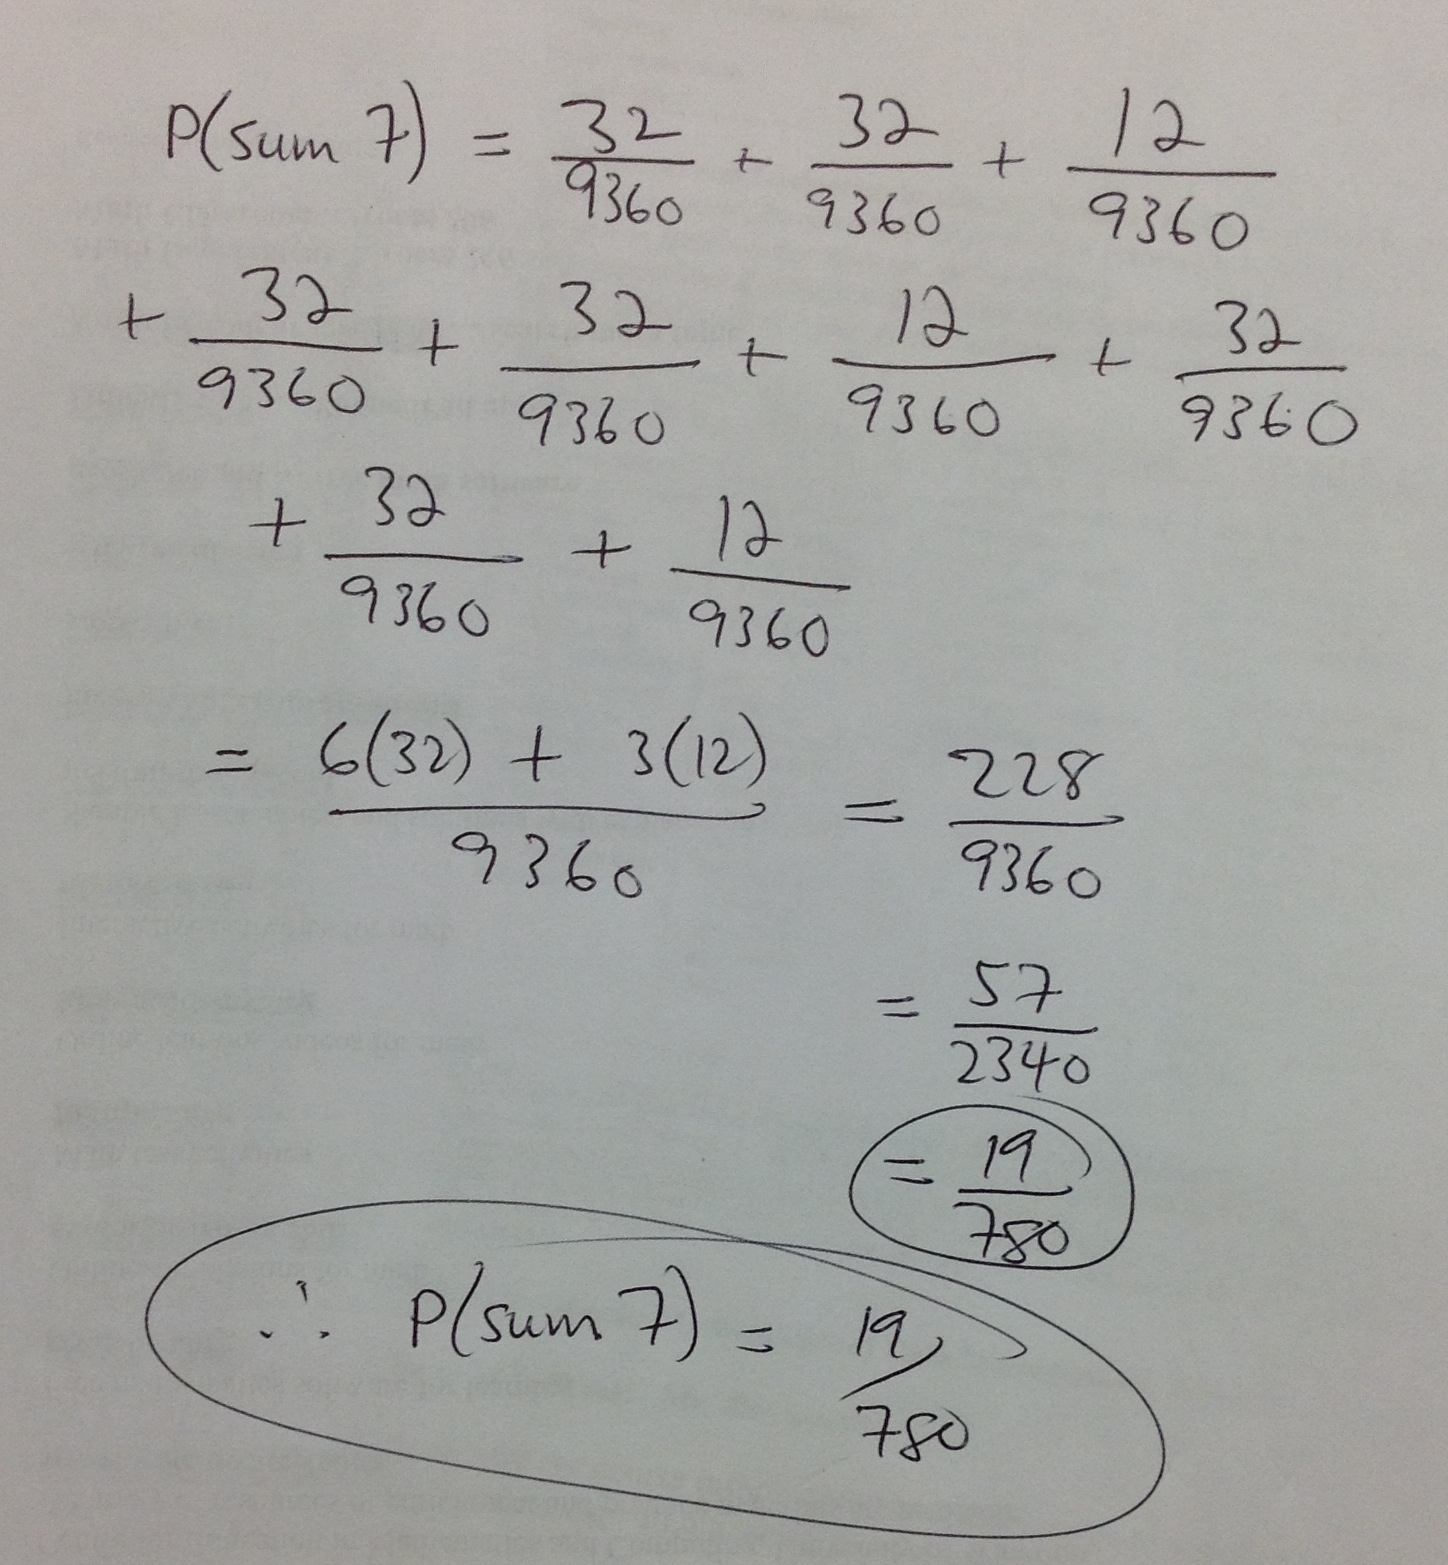 P(sum 7) = 32/9360 + 32/9360 + 12/9360
+ 32/9360 + 32/9360 + 12/9360 + 32/9360
+ 32/9360 + 12/9360
= 6(32) + 3(12)/9360 = 228/9360
= 57/2340
= 19/780
∴ P(sum 7) = 19/780